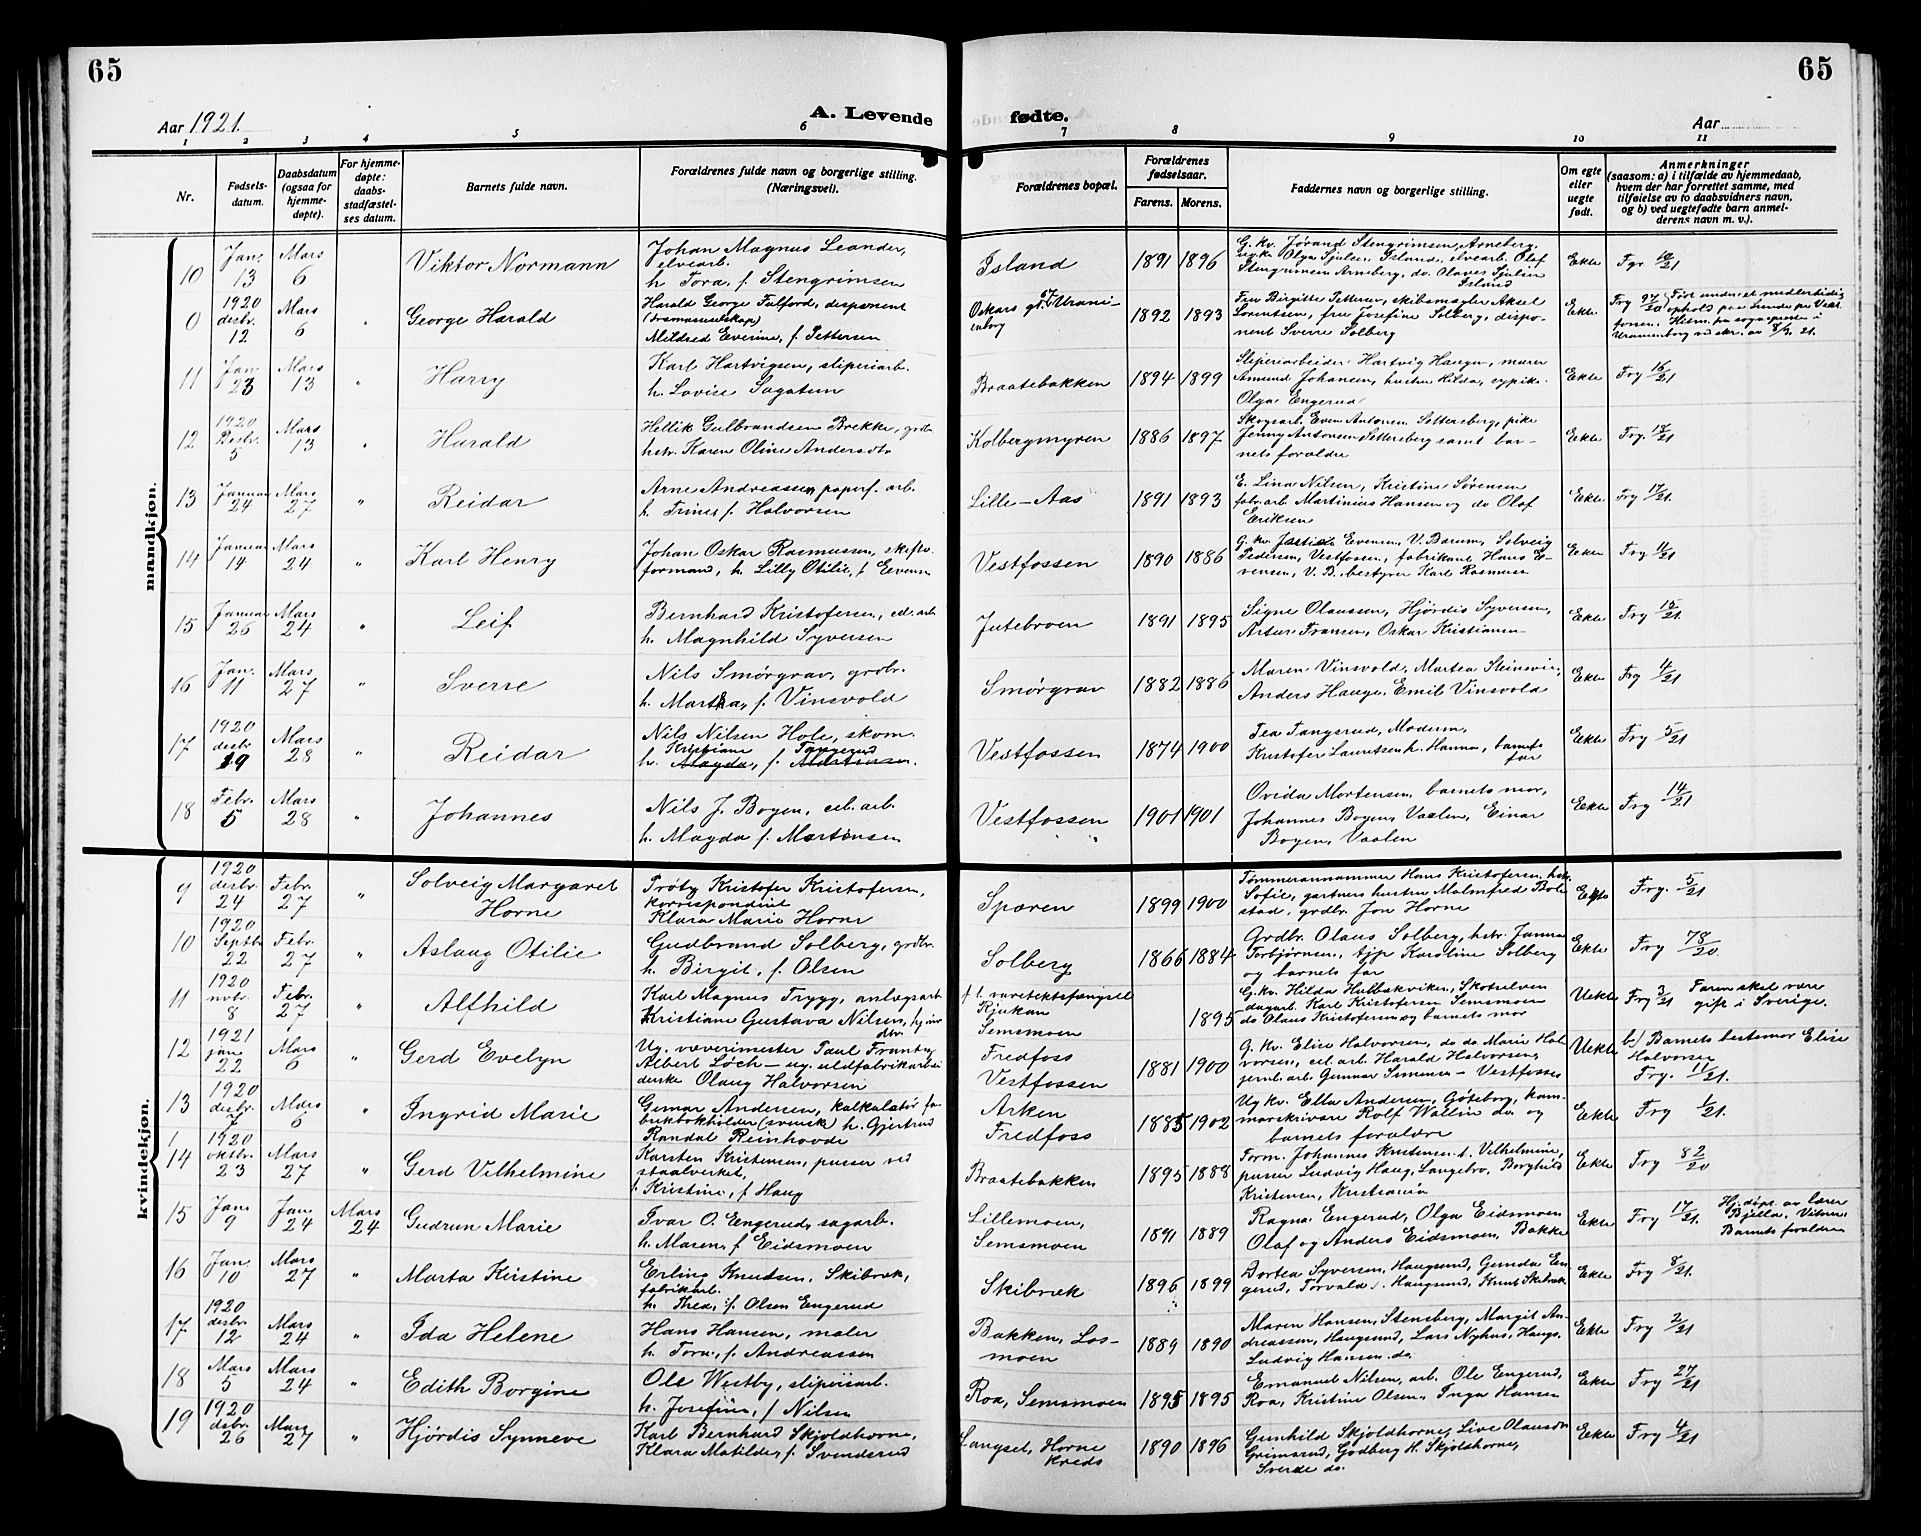 65
65
A. Levende
fødte.
Aar 1921.
Aar
1 2 3 4 5 6
7 8 9 10 11
Nr.
Fødsels-
datum.
Daabsdatum
(ogsaa for
hjemme-
døpte).
For hjemme-
døpte:
daabs-
stadfæstel-
ses datum.
Barnets fulde navn.
Forældrenes fulde navn og borgerlige stilling.
(Næringsvei).
Forældrenes bopæl.
Forældrenes
fødselsaar.
Farens. Morens.
Faddernes navn og borgerlige stilling.
Om egte
eller
uegte
født.
Anmerkninger
(saasom: a) i tilfælde av hjemmedaab,
hvem der har forrettet samme, med
tilføielse av to daabsvidners navn,
og b) ved uegtefødte barn anmel-
derens navn m. v.).
mandkjøn.
10 Jan. 13 Mars 6 Viktor Normann
Johan Magnus Leander,
elvearb.
h Tora, f. Stengrimsen
Island 1891 1896
G. kv. Jørand Stengrimsen, Arneberg,
Olga Sjulsen Island, elvearb. Olaf
Stengrimsen Arneberg, do. Olaves Sjulsen
Island
Ekte Frg. 10/21
0 1920 desbr. 12 Mars 6 " George Harald
Harald George Fulford, disponent
(dramaselskap)
Mildred Everine, f. Pettersen
Oskars gt. 67 Urani-
enborg 1892 1893
Fru Birgitte Pettersen, skibsmægler Aksel
Sørentsen, fru Josefine Solberg, dispo-
nent Sverre Solberg
Ekte. Frg 97/20 Født under et midlertidig
ophold paa
Uranienborg ved skr. av 8/4 21.
11 Jan 23 Mars 13 " Harry
Karl Hartvigsen, sliperiarb.
h. Lovise Sagatun
Braatebakken 1894 1899
Sliperiarbeider Hartvig Haugn, murer
Amund Johansen, hustru Hilda, sypike
Olga Engerud
Ekte Frg 16/21
12 1920 Desbr. 5 Mars 13 " Harald
Hellik Gulbrandsen Brekke, grdbr.
hstr. Karen Oline Andersdtr
Kolbergmyren 1886 1897
Skogsarb. Even Antonsen Settersberg, pike
Jenny Antonsen Settersberg samt bar-
nets forældre
Ekte Frg. 18/21
13 Januar 24 Mars 27 " Reidar
Arne Andreassen papirf. arb.
h. Trine, f. Halvorsen
Lille-Aas 1891 1893
E. Lina Nilsen, Kristine Sørensen
fabr. arb. Martinius Hansen og do Olaf
Eriksen
Ekte Frg 17/21.
14 Januar 14 Mars 24 " Karl Henry
Johan Oskar Rasmussen, skifts-
formand, h. Lilly Otilie, f. Evensen
Vestfossen 1890 1886
G. kv. Evensen, V. Bærum, Solveig
Pedersen, Vestfossen, fabrikant Hans E-
vensen, V. B., bestyrer Karl Rasmuss
Ekte Frg 11/21
15 Januar 26 Mars 24 " Leif
Bernhard Kristofersen, cel. arb
h. Magnhild Syversen
Jutebroen 1891 1895
Signe Olaussen, Hjørdis Syversen,
Artur Fransen, Oskar Kristiansen
Ekte Frg 15/21.
16 Jan. 11 Mars 27 " Sverre
Nils Smørgrav, grdbr.
h. Martha, f. Vinsvold
Smørgrav 1882 1886
Maren Vinsvold, Martea Steinsvi,
Anders Hauge, Emil Vinsvold
Ekte Frg 4/21
17 1920 desbr 29 Mars 28 " Reidar
Nils Nilsen Hole, skom.
Kristiane Tangerud
h. Magda, f. Martinsen.
Vestfossen 1874 1900
Tea Tangerud, Modum,
Kristofer Lauritsen h. Hanna, barnets
far
Ekte Frg 5/21
18 Febr. 5 Mars 28 " Johannes
Nils J. Bogen, cel. arb.
h. Magda f. Martinsen
Vestfossen 1901 1901
Ovida Mortensen, barnets mor,
Johannes Bogen, Vaalen, Einar
Bogen, Vaalen
Ekte Frg 14/21
kvindekjøn.
9 1920 desbr. 24 Febr. 27 " Solveig Margaret
Horne
Trøty Kristofer Kristofersen,
korrespondent
Klara Marie Horne
Spæren 1899 1900
Tømmerannammer Hans Kristofersen, hstr.
Sofie, gartners hustru Malmfred Bol-
stad, grdbr. Jon Horne
Ekte Frg. 5/21
10 1920 Septbr 22 Febr. 27 " Aslaug Otilie
Gudbrand Solberg, grdbr.
h. Birgit, f. Olsen
Solberg 1866 1884
Grdbr. Olaus Solberg, hstr. Janna
Torbjørnsen, tjp Karoline Solberg
og barnets far
Ekte Frg 78/20.
11 1920 novbr. 8 Febr. 27 " Alfhild
Karl Magnus Trygg, anlægsarb
Kristiane Gustava Nilsen,
f. t. varetektsfængsel
Rjukan
Semsmoen 1895
G. kv. Hilda Hubbakviken, Skotselven
dagarb. Karl Kristofersen Semsmoen
do Olaus Kristofersen og barnets mor
Uekte Frg 3/21 Faren skal være
gift i Sverige.
12 1921 jan. 22 Mars 6 " Gerd Evelyn
Ug. væverimester Paul Frants
Albert Løch - ug. uldfabrikarbei
derske Olaug Halvorsen
Fredfoss
Vestfossen 1881 1900
G. kv. Elise Halvorsen, do do Marie Hal
vorsen, cel. arb. Harald Halvorsen,
jernb. arb. Gunnar Simensen - Vestfossen
Uekte b) Barnets bestemor Elise
Halvorsen
Frg. 11/21.
13 1920 desbr. 7 Mars 6 " Ingrid Marie
Gemar Andersen, kalkulatør fa-
brikbokholder (svensk) h. Gjertrud
Randal Reinhovde
Arken
Fredfoss 1885 1902
Ug kv. Ella Andersen, Gøteborg, kam-
marskrivare Rolf Wallin do. og
barnets forældre
Ekte Frg 1/21.
14 1920 oktbr. 23 Mars 27 " Gerd Vilhelmine
Karsten Kristensen, pusser ved
staalverket,
f. Kristine, f. Haug
Braatebakken 1895 1888
Form. Johannes Kristensen h. Vilhelmine,
pusser Ludvig Haug, Langebro, Borghild
Kristensen, Kristiania
Ekte Frg 82/20
15 Jan. 9 Jan. 24 Mars 24 Gudrun Marie
Ivar O. Engerud, sagarb.
h. Maren, f Eidsmoen
Lillemoen,
Semsmoen 1891 1889
Ragna Engerud, Olga Eidsmoen
Olaf og Anders Eidsmoen, Bakke
Ekte Frg 17/21. Hj. døpt av lærer
Bjella, Vitner:
Barnets forældre
16 Jan. 10 Mars 27 " Marta Kirstine
Erling Knudsen, Skibræk,
fabrikarb.
h. Thea, f. Olsen Engerud
Skibræk 1896 1899
Dortea Syversen, Haugsund, Gunda En-
gerud, Torvald Haugsund, Knut Skibræk
Ekte Frg 8/21.
17 1920 desbr. 12 Mars 24 " Ida Helene
Hans Hansen, maler
h. Tora, f. Andreassen
Bakken, Los-
moen 1889 1890
Maren Hansen, Stensberg, Margit An-
dreassen, Haugsund, Lars Nyhus, Haugs.
Ludvig Hansen do.
Ekte Frg 2/21
18 Mars 5 Mars 24 " Edith Borgine
Ole Westby, sliperiarb.
h. Josefine, f Nilsen
Roa, Semsmoen 1895 1895
Emanuel Nilsen, arb. Ole Engerud,
Roa, Kristine Olsen, Inga Hansen
Ekte Frg 27/21
19 1920 desbr. 26 Mars 27 " Hjördis Synneve
Karl Bernhard Skjoldhorne,
Klara Matilde, f. Svenderud
Langset, Horne
kreds 1890 1896
Gunhild Skjoldhorne, Live Olausdtr
Grimsrud, Godberg H. Skjoldhorne,
Sverde do.
Ekte Frg 4/21